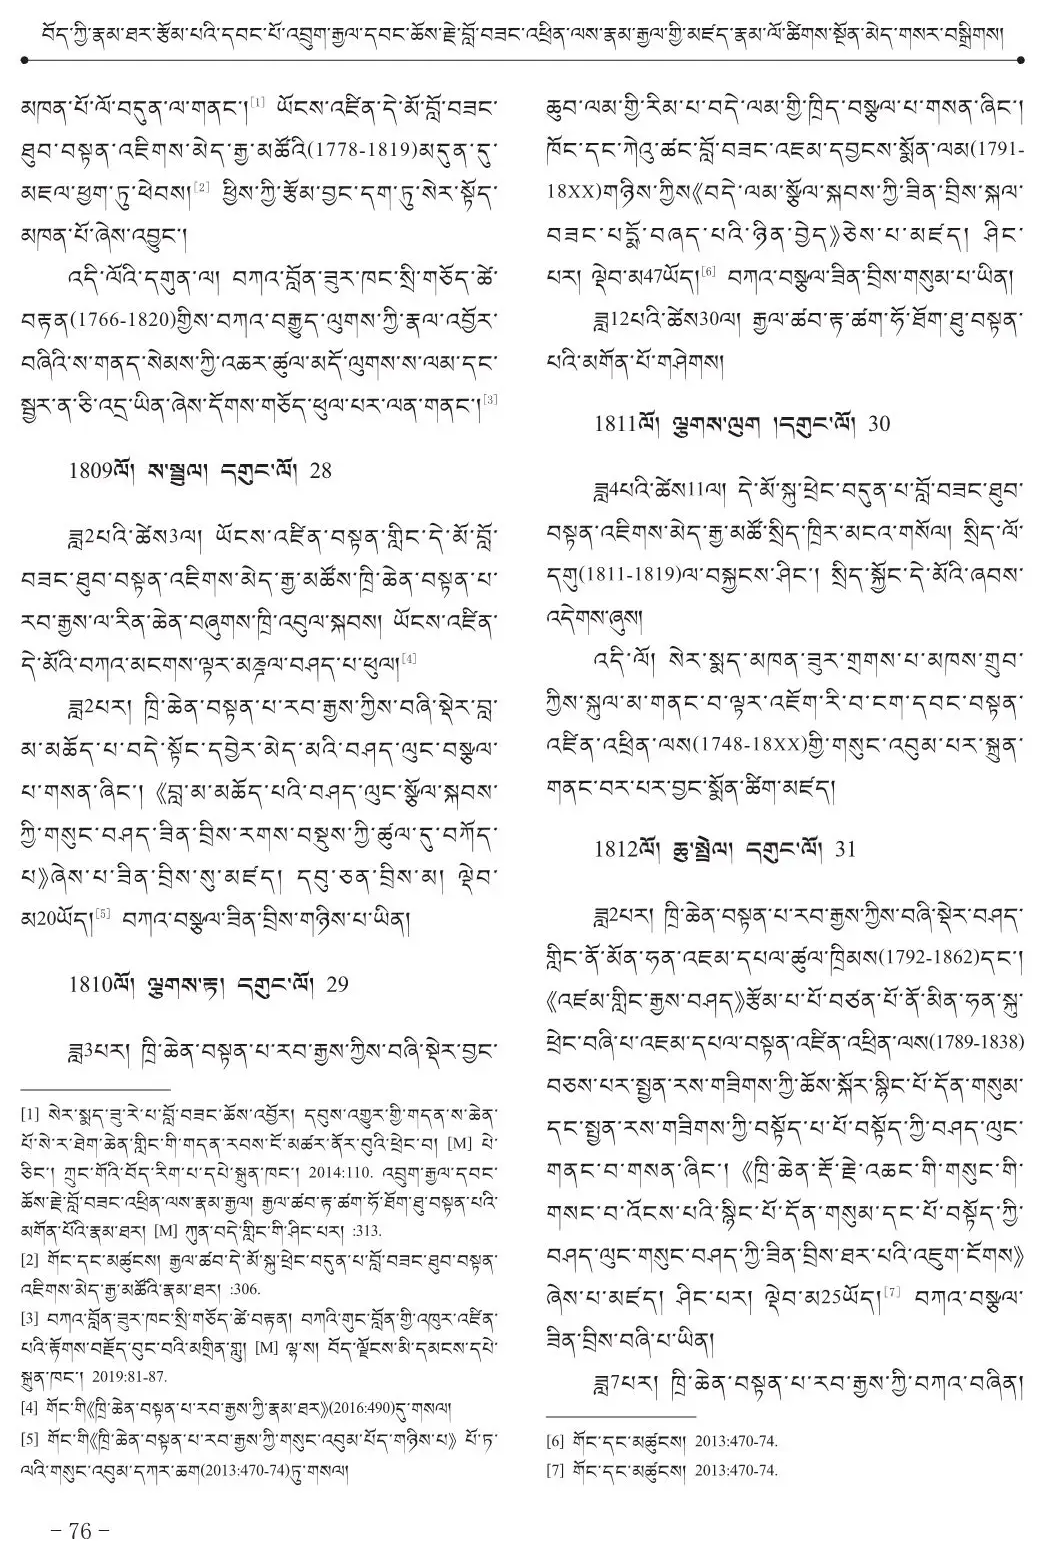 བོད་ཀྱི་རྣམ་ཐར་རྩོམ་པའི་དབང་པོ་འབྲུག་རྒྱལ་དབང་ཆོས་རྗེ་བློ་བཟང་འཕྲིན་ལས་རྣམ་རྒྱལ་གྱི་མཛད་རྣམ་ལོ་ཚིགས་སྔོན་མེད་གསར་བསྒྲིགས།
མཁན་པོ་ལོ་བདུན་ལ་གནང་།[1] ཡོངས་འཛིན་དེ་མོ་བློ་བཟང་
ཐུབ་བསྟན་འཇིགས་མེད་རྒྱ་མཚོའི(1778-1819)མདུན་དུ་
མཇལ་ཕྱག་ཏུ་ཕེབས།[2] ཕྱིས་ཀྱི་རྩོམ་བྱང་དག་ཏུ་སེར་སྟོད་
མཁན་པོ་ཞེས་འབྱུང་།
འདི་ལོའི་དགུན་ལ། བཀའ་བློན་ཟུར་ཁང་སྲི་གཅོད་ཚེ་
བརྟན(1766-1820)གྱིས་བཀའ་བརྒྱུད་ལུགས་ཀྱི་རྣལ་འབྱོར་
བཞིའི་ས་གནད་སེམས་ཀྱི་འཆར་ཚུལ་མདོ་ལུགས་ས་ལམ་དང་
སྦྱར་ན་ཅི་འདྲ་ཡིན་ཞེས་དོགས་གཅོད་ཕུལ་པར་ལན་གནང་།[3]
1809ལོ། ས་སྦྲུལ། དགུང་ལོ། 28
ཟླ2པའི་ཚེས3ལ། ཡོངས་འཛིན་བསྟན་གླིང་དེ་མོ་བློ་
བཟང་ཐུབ་བསྟན་འཇིགས་མེད་རྒྱ་མཚོས་ཁྲི་ཆེན་བསྟན་པ་
རབ་རྒྱས་ལ་རིན་ཆེན་བཞུགས་ཁྲི་འབུལ་སྐབས། ཡོངས་འཛིན་
དེ་མོའི་བཀའ་མངགས་ལྟར་མཎྜལ་བཤད་པ་ཕུལ།[4]
ཟླ2པར། ཁྲི་ཆེན་བསྟན་པ་རབ་རྒྱས་ཀྱིས་བཞི་སྡེར་བླ་
མ་མཆོད་པ་བདེ་སྟོང་དབྱེར་མེད་མའི་བཤད་ལུང་བསྩལ་
པ་གསན་ཞིང་། 《བླ་མ་མཆོད་པའི་བཤད་ལུང་སྩོལ་སྐབས་
ཀྱི་གསུང་བཤད་ཟིན་བྲིས་རགས་བསྡུས་ཀྱི་ཚུལ་དུ་བཀོད་
པ》ཞེས་པ་ཟིན་བྲིས་སུ་མཛད། དབུ་ཅན་བྲིས་མ། ལྡེབ་
མ20ཡོད།[5] བཀའ་བསྩལ་ཟིན་བྲིས་གཉིས་པ་ཡིན།
1810ལོ། ལྕགས་རྟ། དགུང་ལོ། 29
ཟླ3པར། ཁྲི་ཆེན་བསྟན་པ་རབ་རྒྱས་ཀྱིས་བཞི་སྡེར་བྱང་
[1] སེར་སྨད་ཟུ་རེ་པ་བློ་བཟང་ཆོས་འབྱོར། དབུས་འགྱུར་གྱི་གདན་ས་ཆེན་
པོ་སེ་ར་ཐེག་ཆེན་གླིང་གི་གདན་རབས་ངོ་མཚར་ནོར་བུའི་ཕྲེང་བ། [M] པེ་
ཅིང་། ཀྲུང་གོའི་བོད་རིག་པ་དཔེ་སྐྲུན་ཁང་། 2014:110. འབྲུག་རྒྱལ་དབང་
ཆོས་རྗེ་བློ་བཟང་འཕྲིན་ལས་རྣམ་རྒྱལ། རྒྱལ་ཚབ་རྟ་ཚག་ཧོ་ཐོག་ཐུ་བསྟན་པའི་
མགོན་པོའི་རྣམ་ཐར། [M] ཀུན་བདེ་གླིང་གི་ཤིང་པར། :313.
[2] གོང་དང་མཚུངས། རྒྱལ་ཚབ་དེ་མོ་སྐུ་ཕྲེང་བདུན་པ་བློ་བཟང་ཐུབ་བསྟན་
འཇིགས་མེད་རྒྱ་མཚོའི་རྣམ་ཐར། :306.
[3] བཀའ་བློན་ཟུར་ཁང་སྲི་གཅོད་ཚེ་བརྟན། བཀའི་གུང་བློན་གྱི་འཁུར་འཛིན་
པའི་རྟོགས་བརྗོད་བུང་བའི་མགྲིན་གླུ། [M] ལྷ་ས། བོད་ལྗོངས་མི་དམངས་དཔེ་
སྐྲུན་ཁང་། 2019:81-87.
[4] གོང་གི《ཁྲི་ཆེན་བསྟན་པ་རབ་རྒྱས་ཀྱི་རྣམ་ཐར》(2016:490)དུ་གསལ།
[5] གོང་གི《ཁྲི་ཆེན་བསྟན་པ་རབ་རྒྱས་ཀྱི་གསུང་འབུམ་པོད་གཉིས་པ》 པོ་ཏ་
ལའི་གསུང་འབུམ་དཀར་ཆག(2013:470-74)ཏུ་གསལ།
ཆུབ་ལམ་གྱི་རིམ་པ་བདེ་ལམ་གྱི་ཁྲིད་བསྩལ་པ་གསན་ཞིང་།
ཁོང་དང་ཀེའུ་ཚང་བློ་བཟང་འཇམ་དབྱངས་སྨོན་ལམ(1791-
18XX)གཉིས་ཀྱིས《བདེ་ལམ་སྩོལ་སྐབས་ཀྱི་ཟིན་བྲིས་སྐལ་
བཟང་པདྨོ་བཞད་པའི་ཉིན་བྱེད》ཅེས་པ་མཛད། ཤིང་
པར། ལྡེབ་མ47ཡོད།[6] བཀའ་བསྩལ་ཟིན་བྲིས་གསུམ་པ་ཡིན།
ཟླ12པའི་ཚེས30ལ། རྒྱལ་ཚབ་རྟ་ཚག་ཧོ་ཐོག་ཐུ་བསྟན་
པའི་མགོན་པོ་གཤེགས།
1811ལོ། ལྕགས་ལུག །དགུང་ལོ། 30
ཟླ4པའི་ཚེས11ལ། དེ་མོ་སྐུ་ཕྲེང་བདུན་པ་བློ་བཟང་ཐུབ་
བསྟན་འཇིགས་མེད་རྒྱ་མཚོ་སྲིད་ཁྲིར་མངའ་གསོལ། སྲིད་ལོ་
དགུ(1811-1819)ལ་བསྐྱངས་ཤིང་། སྲིད་སྐྱོང་དེ་མོའི་ཞབས་
འདེགས་ཞུས།
འདི་ལོ། སེར་སྨད་མཁན་ཟུར་གྲགས་པ་མཁས་གྲུབ་
ཀྱིས་སྐུལ་མ་གནང་བ་ལྟར་འཇོག་རི་བ་ངག་དབང་བསྟན་
འཛིན་འཕྲིན་ལས(1748-18XX)གྱི་གསུང་འབུམ་པར་སྐྲུན་
གནང་བར་པར་བྱང་སྨོན་ཚིག་མཛད།
1812ལོ། ཆུ་སྤྲེལ། དགུང་ལོ། 31
ཟླ2པར། ཁྲི་ཆེན་བསྟན་པ་རབ་རྒྱས་ཀྱིས་བཞི་སྡེར་བཤད་
གླིང་ནོ་མོན་ཧན་འཇམ་དཔལ་ཚུལ་ཁྲིམས(1792-1862)དང་།
《འཛམ་གླིང་རྒྱས་བཤད》རྩོམ་པ་པོ་བཙན་པོ་ནོ་མིན་ཧན་སྐུ་
ཕྲེང་བཞི་པ་འཇམ་དཔལ་བསྟན་འཛིན་འཕྲིན་ལས(1789-1838)
བཅས་པར་སྤྱན་རས་གཟིགས་ཀྱི་ཆོས་སྐོར་སྙིང་པོ་དོན་གསུམ་
དང་སྤྱན་རས་གཟིགས་ཀྱི་བསྟོད་པ་པོ་བསྟོད་ཀྱི་བཤད་ལུང་
གནང་བ་གསན་ཞིང་། 《ཁྲི་ཆེན་རྡོ་རྗེ་འཆང་གི་གསུང་གི་
གསང་བ་འོངས་པའི་སྙིང་པོ་དོན་གསུམ་དང་པོ་བསྟོད་ཀྱི་
བཤད་ལུང་གསུང་བཤད་ཀྱི་ཟིན་བྲིས་ཐར་པའི་འཇུག་ངོགས》
ཞེས་པ་མཛད། ཤིང་པར། ལྡེབ་མ25ཡོད།[7] བཀའ་བསྩལ་
ཟིན་བྲིས་བཞི་པ་ཡིན།
ཟླ7པར། ཁྲི་ཆེན་བསྟན་པ་རབ་རྒྱས་ཀྱི་བཀའ་བཞིན།
[6] གོང་དང་མཚུངས། 2013:470-74.
[7] གོང་དང་མཚུངས། 2013:470-74.
– 76 –